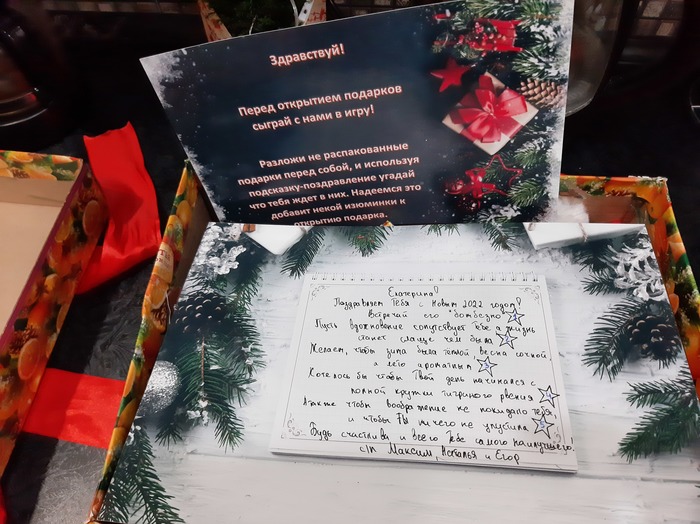 Здравствуй!
Перед открытием подарков
сыграй с нами в игру!
Разложи не распакованные
подарки перед собой, и используя
подсказку-поздравление угадай
что тебя ждет в них. Надеемся это
добавит некой изюминки к
открытию подарка.
Екатерина!
Поздравляем Тебя с Новым 2022 годом!
Встречай его "бомбезно"
Пусть вдохновение сопутствует тебе а жизнь
станет слаще чем была
Желаем, чтобы зима была теплой, весна сочной,
а лето ароматным
Хотелось бы чтобы Твой день начинался с
полной кружки тигриного рвения
А также чтобы воображение не покидало тебя,
и чтобы Ты ничего не упустила
Будь счастлива и всего Тебе самого наилучшего!
с/п Максим, Наталья и Егор